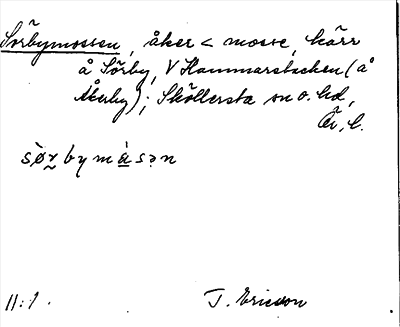 Sörbymossen, åker < mosse, kärr
å Sörby, V Hammarbacken (å
Åkerby); Sköllersta sn o. hd,
Ör. l.
sø̀rbymåsən
11:1.
J. Ericson